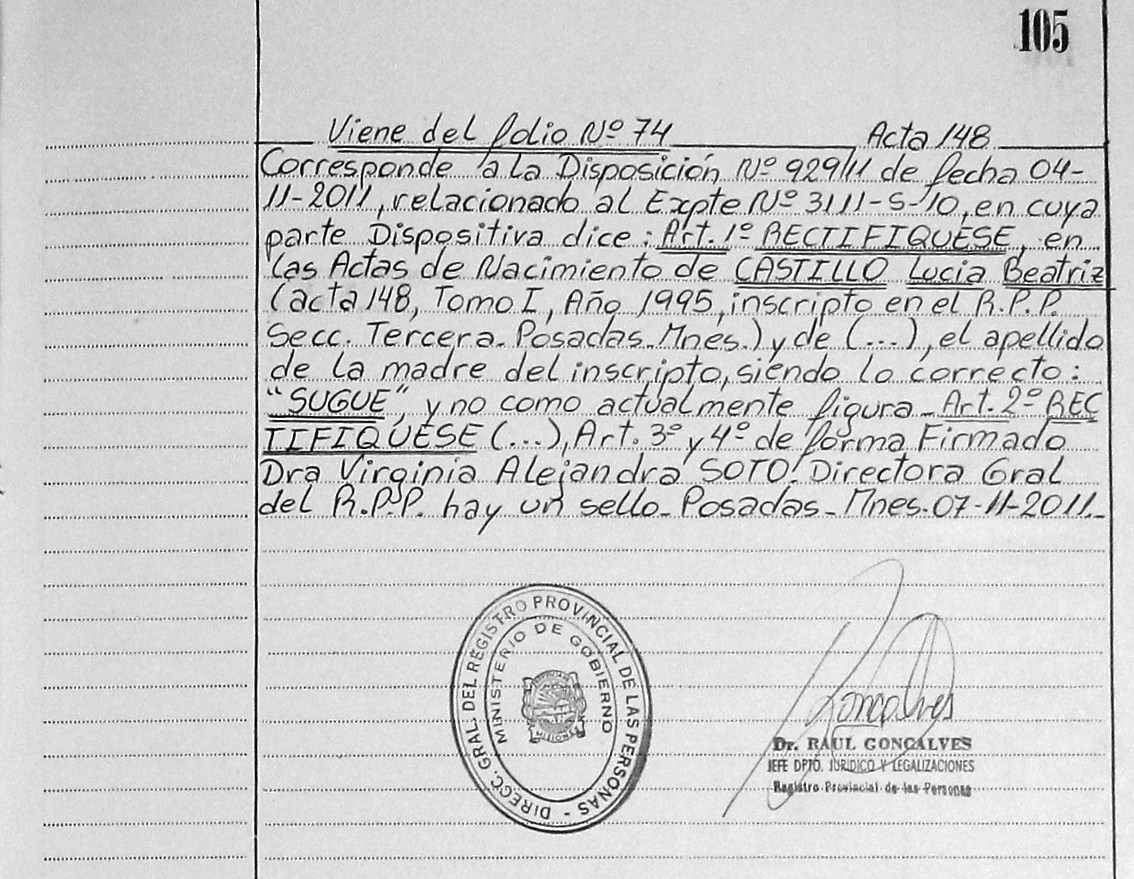 105
Viene del folio Nº 74 Acta 148
Corresponde a la Disposición Nº 929/11 de fecha 04-
11-2011, relacionado al Expte Nº 3111-S-10, en cuya
parte Dispositiva dice: Art. 1º RECTIFIQUESE, en
las Actas de Nacimiento de CASTILLO Lucia Beatriz
(acta 148, Tomo I, Año 1995, inscripto en el R.P.P.
Secc. Tercera. Posadas. Mnes.) y de (...), el apellido
de la madre del inscripto, siendo lo correcto:
"SUGUE", y no como actualmente figura_ Art. 2º REC
TIFIQUESE (...), Art. 3º y 4º de forma Firmado
Dra Virginia Alejandra SOTO. Directora Gral
del R.P.P. hay un sello_ Posadas_ Mnes. 07-11-2011._
DIRECC. GRAL. DEL REGISTRO PROVINCIAL DE LAS PERSONAS -
MINISTERIO DE GOBIERNO
MISIONES
Goncalves
Dr. RAUL GONCALVES
JEFE DPTO. JURIDICO Y LEGALIZACIONES
Registro Provincial de las Personas